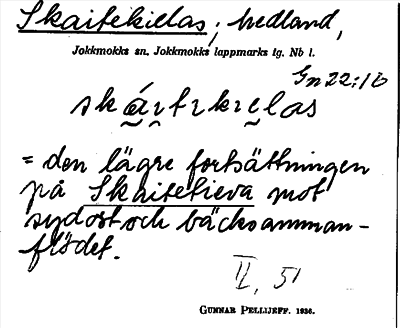 Skaitekielas, hedland,
Jokkmokks sn. Jokkmokks lappmarks tg. Nb l.
Gn 22:1 b
skái̯tɛkıe̯las
= den lägre fortsättningen
på Skaitetieva mot
sydost och bäcksamman-
flödet.
II, 51
GUNNAR PELLIJEFF. 1936.